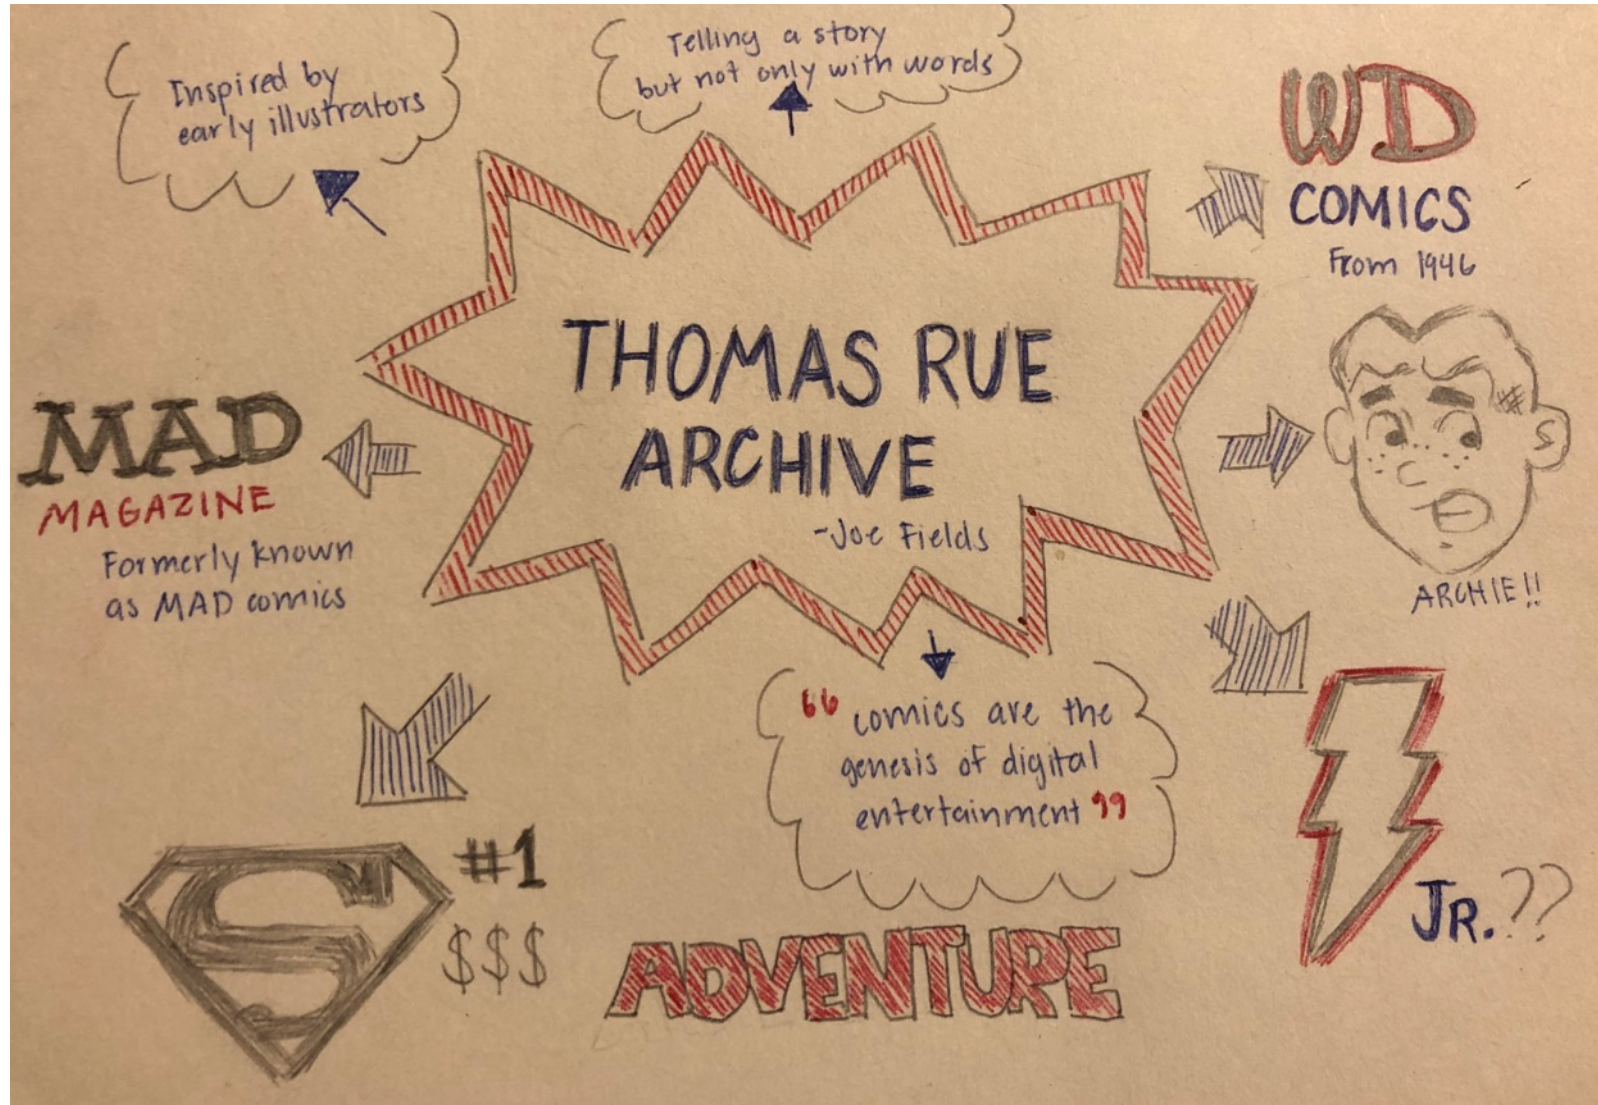 Inspired by
early illustrators
Telling a story
but not only with words
WD
COMICS
From 1946
THOMAS RUE
ARCHIVE
-Joe Fields
MAD
MAGAZINE
Formerly known
as MAD comics
ARCHIE!!
“comics are the
genesis of digital
entertainment”
S
#1
$$$
ADVENTURE
JR.??